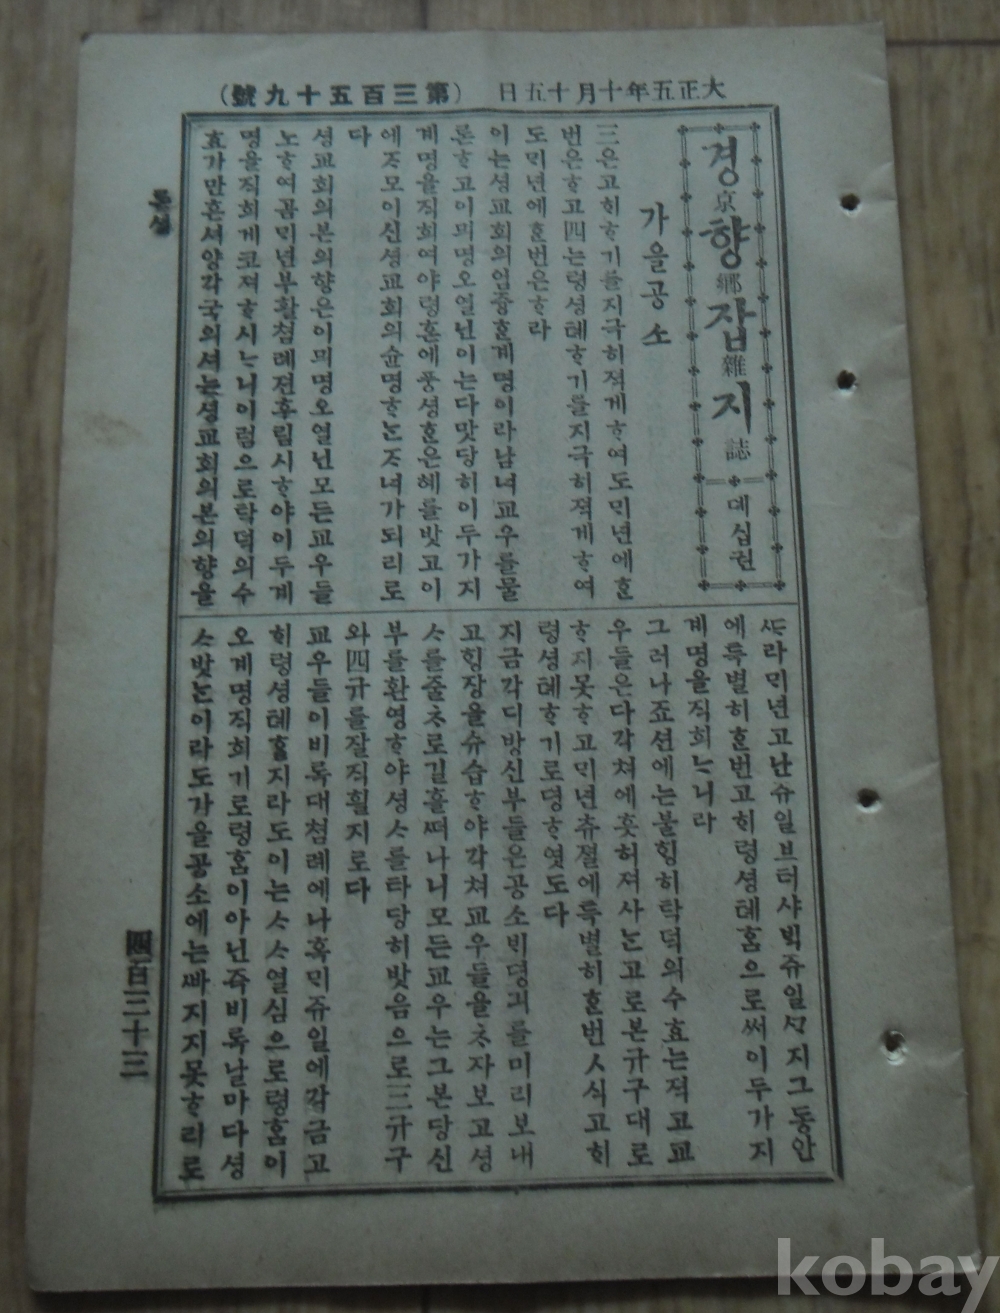 大正五年十月十五日 (第三百五十九號)
경京향鄕잡雜지誌 뎨십권
가을공소
三은고ᄒᆡᄒᆞ기를지극히젹게ᄒᆞ여도ᄆᆡ년에ᄒᆞᆫ
번은ᄒᆞ고四는령셩톄ᄒᆞ기를지극히젹게ᄒᆞ여
도ᄆᆡ년에ᄒᆞᆫ번은ᄒᆞ라
이는셩교회의엄중ᄒᆞᆫ계명이라남녀교우를물
론ᄒᆞ고이믜명오열닌이는다맛당히이두가지
계명을직희여야령혼에풍셩ᄒᆞᆫ은혜를밧고이
에ᄌᆞ모이신셩교회의슌명ᄒᆞᄂᆞᆫᄌᆞ녀가되리로
다
셩교회의본의향은이믜명오열닌모든교우들
노ᄒᆞ여곰ᄆᆡ년부활쳠례젼후림시ᄒᆞ야이두계
명을직희게코져ᄒᆞ시ᄂᆞ니이럼으로탁덕의수
효가만흔셔양각국의셔는셩교회의본의향을
ᄯᆞ라ᄆᆡ년고난쥬일브터샤ᄇᆡᆨ쥬일ᄭᆞ지그동안
에특별히ᄒᆞᆫ번고ᄒᆡ령셩톄홈으로써이두가지
계명을직희ᄂᆞ니라
그러나죠션에는불ᄒᆡᆼ히탁덕의수효는젹고교
우들은다각쳐에흣허져사ᄂᆞᆫ고로본규구대로
ᄒᆞ지못ᄒᆞ고ᄆᆡ년츄졀에특별히ᄒᆞᆫ번ᄉᆡᆨ고ᄒᆡ
령셩톄ᄒᆞ기로뎡ᄒᆞ엿도다
지금각디방신부들은공소ᄇᆡ뎡긔를미리보내
고ᄒᆡᆼ장을슈습ᄒᆞ야각쳐교우들을ᄎᆞ자보고셩
ᄉᆞ를줄ᄎᆞ로길흘ᄯᅥ나니모든교우는그본당신
부를환영ᄒᆞ야셩ᄉᆞ를타당히밧음으로三규구
와四규를잘직흴지로다
교우들이비록대쳠례에나혹ᄆᆡ쥬일에각금고
ᄒᆡ령셩톄ᄒᆞᆯ지라도이는ᄉᆞᄉᆞ열심으로령홈이
오계명직희기로령홈이아닌즉비록날마다셩
ᄉᆞ밧ᄂᆞᆫ이라도가을공소에는ᄲᅡ지지못ᄒᆞ리로
론셜
四百三十三
kobay